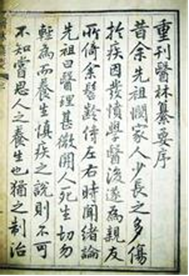 重刊醫林纂要序
昔余先祖憫家人少長之多傷
於疾因發憤學醫後遂為親友
所倚余髫齡侍左右時聞緒論
先祖曰醫理甚微關人死生切勿
輕為而養生慎疾之說則不可
不知嘗思人之養生也猶之制治